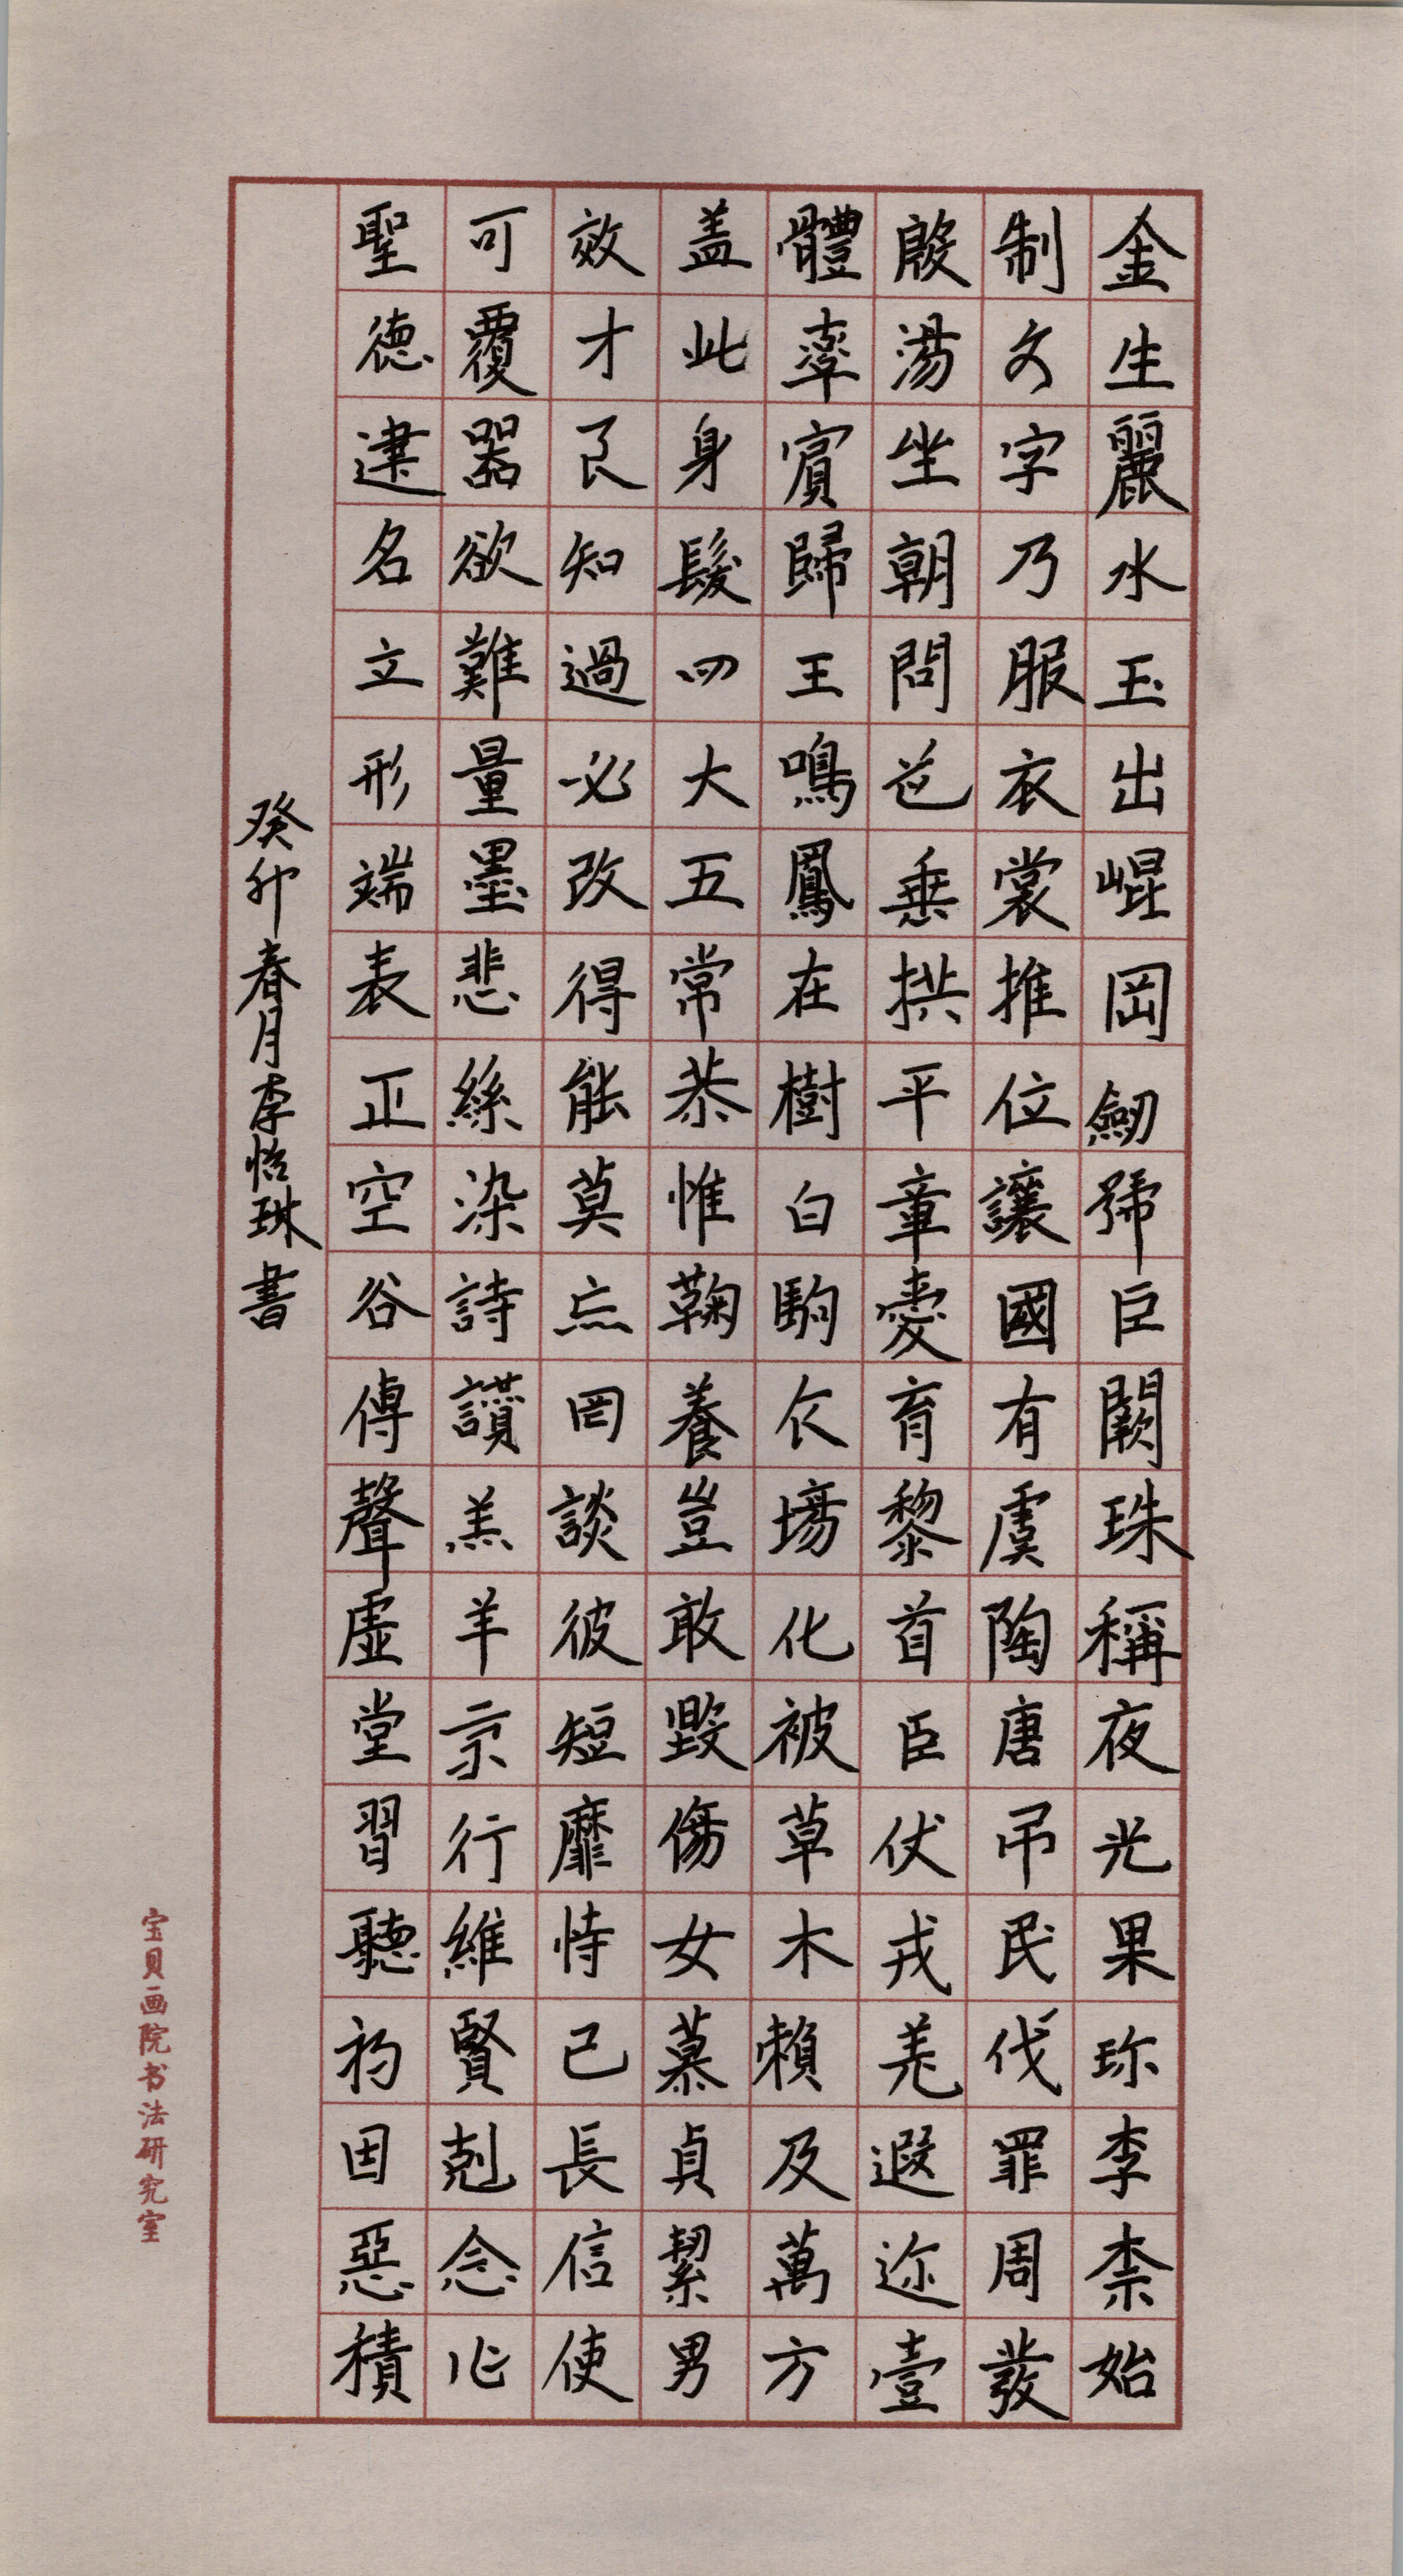 金生麗水玉出崐岡劒號巨闕珠稱夜光果珎李柰始
制文字乃服衣裳推位讓國有虞陶唐吊民伐罪周發
殷湯坐朝問道垂拱平章愛育黎首臣伏戎羌遐迩壹
體率賓歸王鳴鳳在樹白駒食場化被草木賴及萬方
盖此身髮四大五常恭惟鞠養豈敢毀傷女慕貞絜男
效才良知過必改得能莫忘罔談彼短靡恃己長信使
可覆器欲難量墨悲絲染詩讃羔羊京行維賢剋念作
聖德建名立形端表正空谷傳聲虛堂習聽禍因惡積
癸卯春月李怡琳書
宝贝画院书法研究室